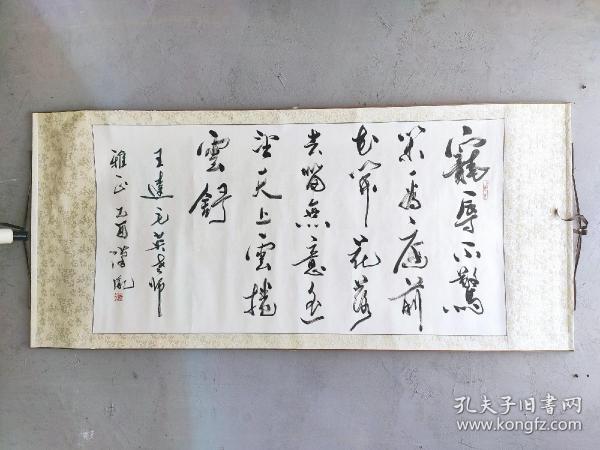 寵辱不驚
笑看庭前
花開花落
去留無意坐
望天上雲捲
雲舒
王達
英老師
雅正 乙酉
孔夫子旧书网
www.kongfz.com